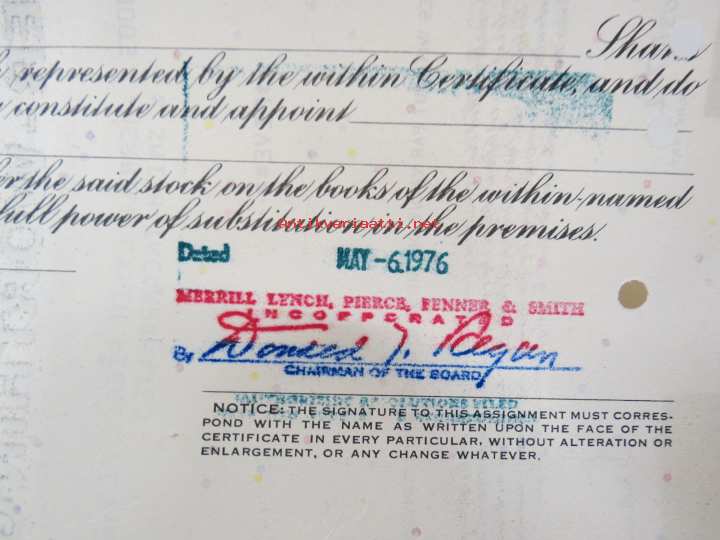 Shares
represented by the within Certificate, and do
constitute and appoint
the said stock on the books of the within-named
full power of substitution in the premises.
antikvariaatti.net
Dated MAY -6.1976
MERRILL LYNCH, PIERCE, FENNER & SMITH
INCORPORATED
By Donald T. Regan
CHAIRMAN OF THE BOARD
AUTHORIZING RESOLUTIONS FILED
NOTICE: THE SIGNATURE TO THIS ASSIGNMENT MUST CORRES-
POND WITH THE NAME AS WRITTEN UPON THE FACE OF THE
CERTIFICATE IN EVERY PARTICULAR, WITHOUT ALTERATION OR
ENLARGEMENT, OR ANY CHANGE WHATEVER.